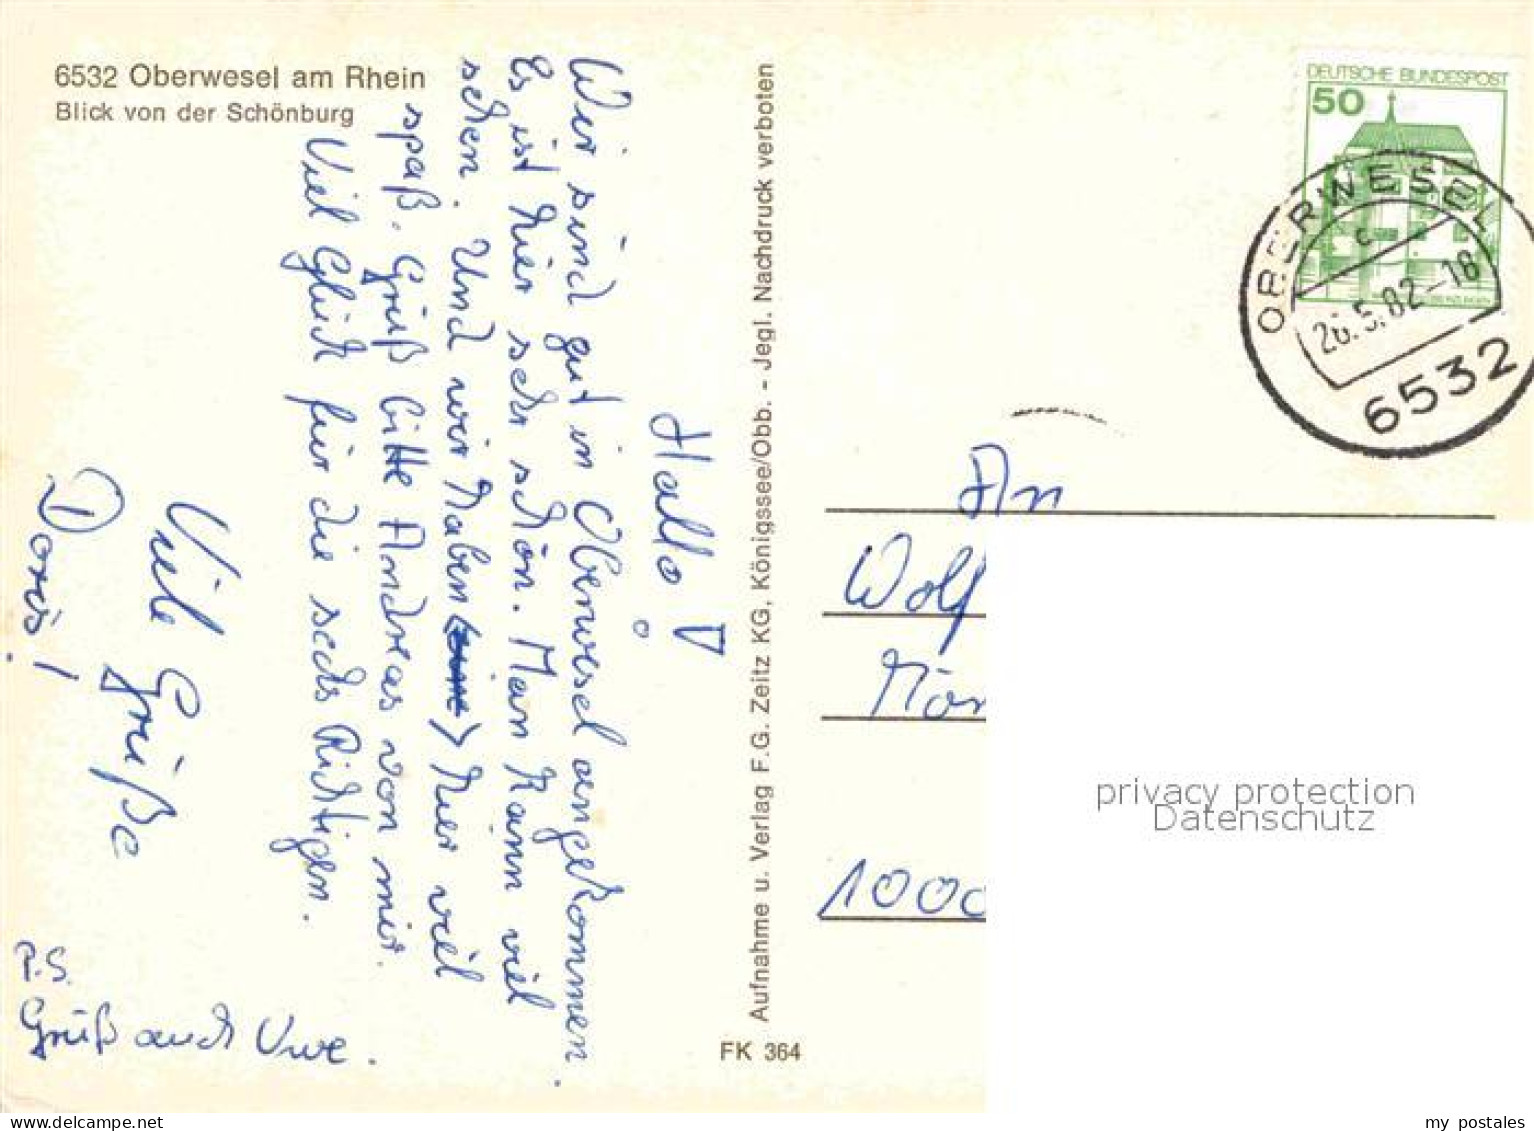 6532 Oberwesel am Rhein
Blick von der Schönburg
Hallo!
Wir sind gut in Oberwesel angekommen.
Es ist hier sehr schön. Man kann viel
sehen. Und wir haben hier viel
spaß. Grüß bitte Andreas von mir.
Viel Glück für die sechs Richtigen.
Viele Grüße
Doris!
P.S.
Grüß auch Uwe.
Aufnahme u. Verlag F.G. Zeitz KG, Königssee/Obb. - Jegl. Nachdruck verboten
FK 364
DEUTSCHE BUNDESPOST
50
OBERWESEL
c
26.5.82-18
6532
An
Wolf
1000
privacy protection
Datenschutz
my postales